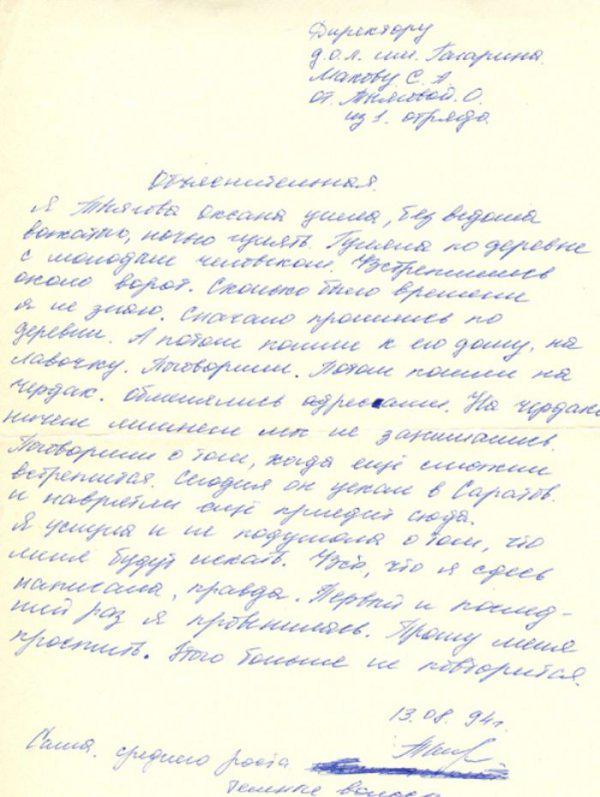 Директору
д.о.л. им. Гагарина
Макову С. А
от Тняговой. О.
из 1. отряда
Объяснительная.
Я Тнягова Оксана ушла, без ведома
вожатых, ночью гулять. Гуляла по деревне
с молодым человеком. Встретились
около ворот. Сколько было времени
я не знаю. Сначало прошлись по
деревни. А потом пошли к его дому, на
лавочку. Поговорили. Потом пошли на
чердак. Обменялись адресами. На чердаке
ничем лишнем мы не занимались.
Поговорили о том, когда ещё сможем
встретится. Сегодня он уехал в Саратов.
и наврятли ещё приедит сюда.
Я ушла и не подумала о том, что
меня будут искать. Всё, что я здесь
написала, правда. Первый и послед-
ний раз я провинилась. Прошу меня
простить. Этого больше не повторится.
13.08.94г.
Саша. среднего роста
темные волосы